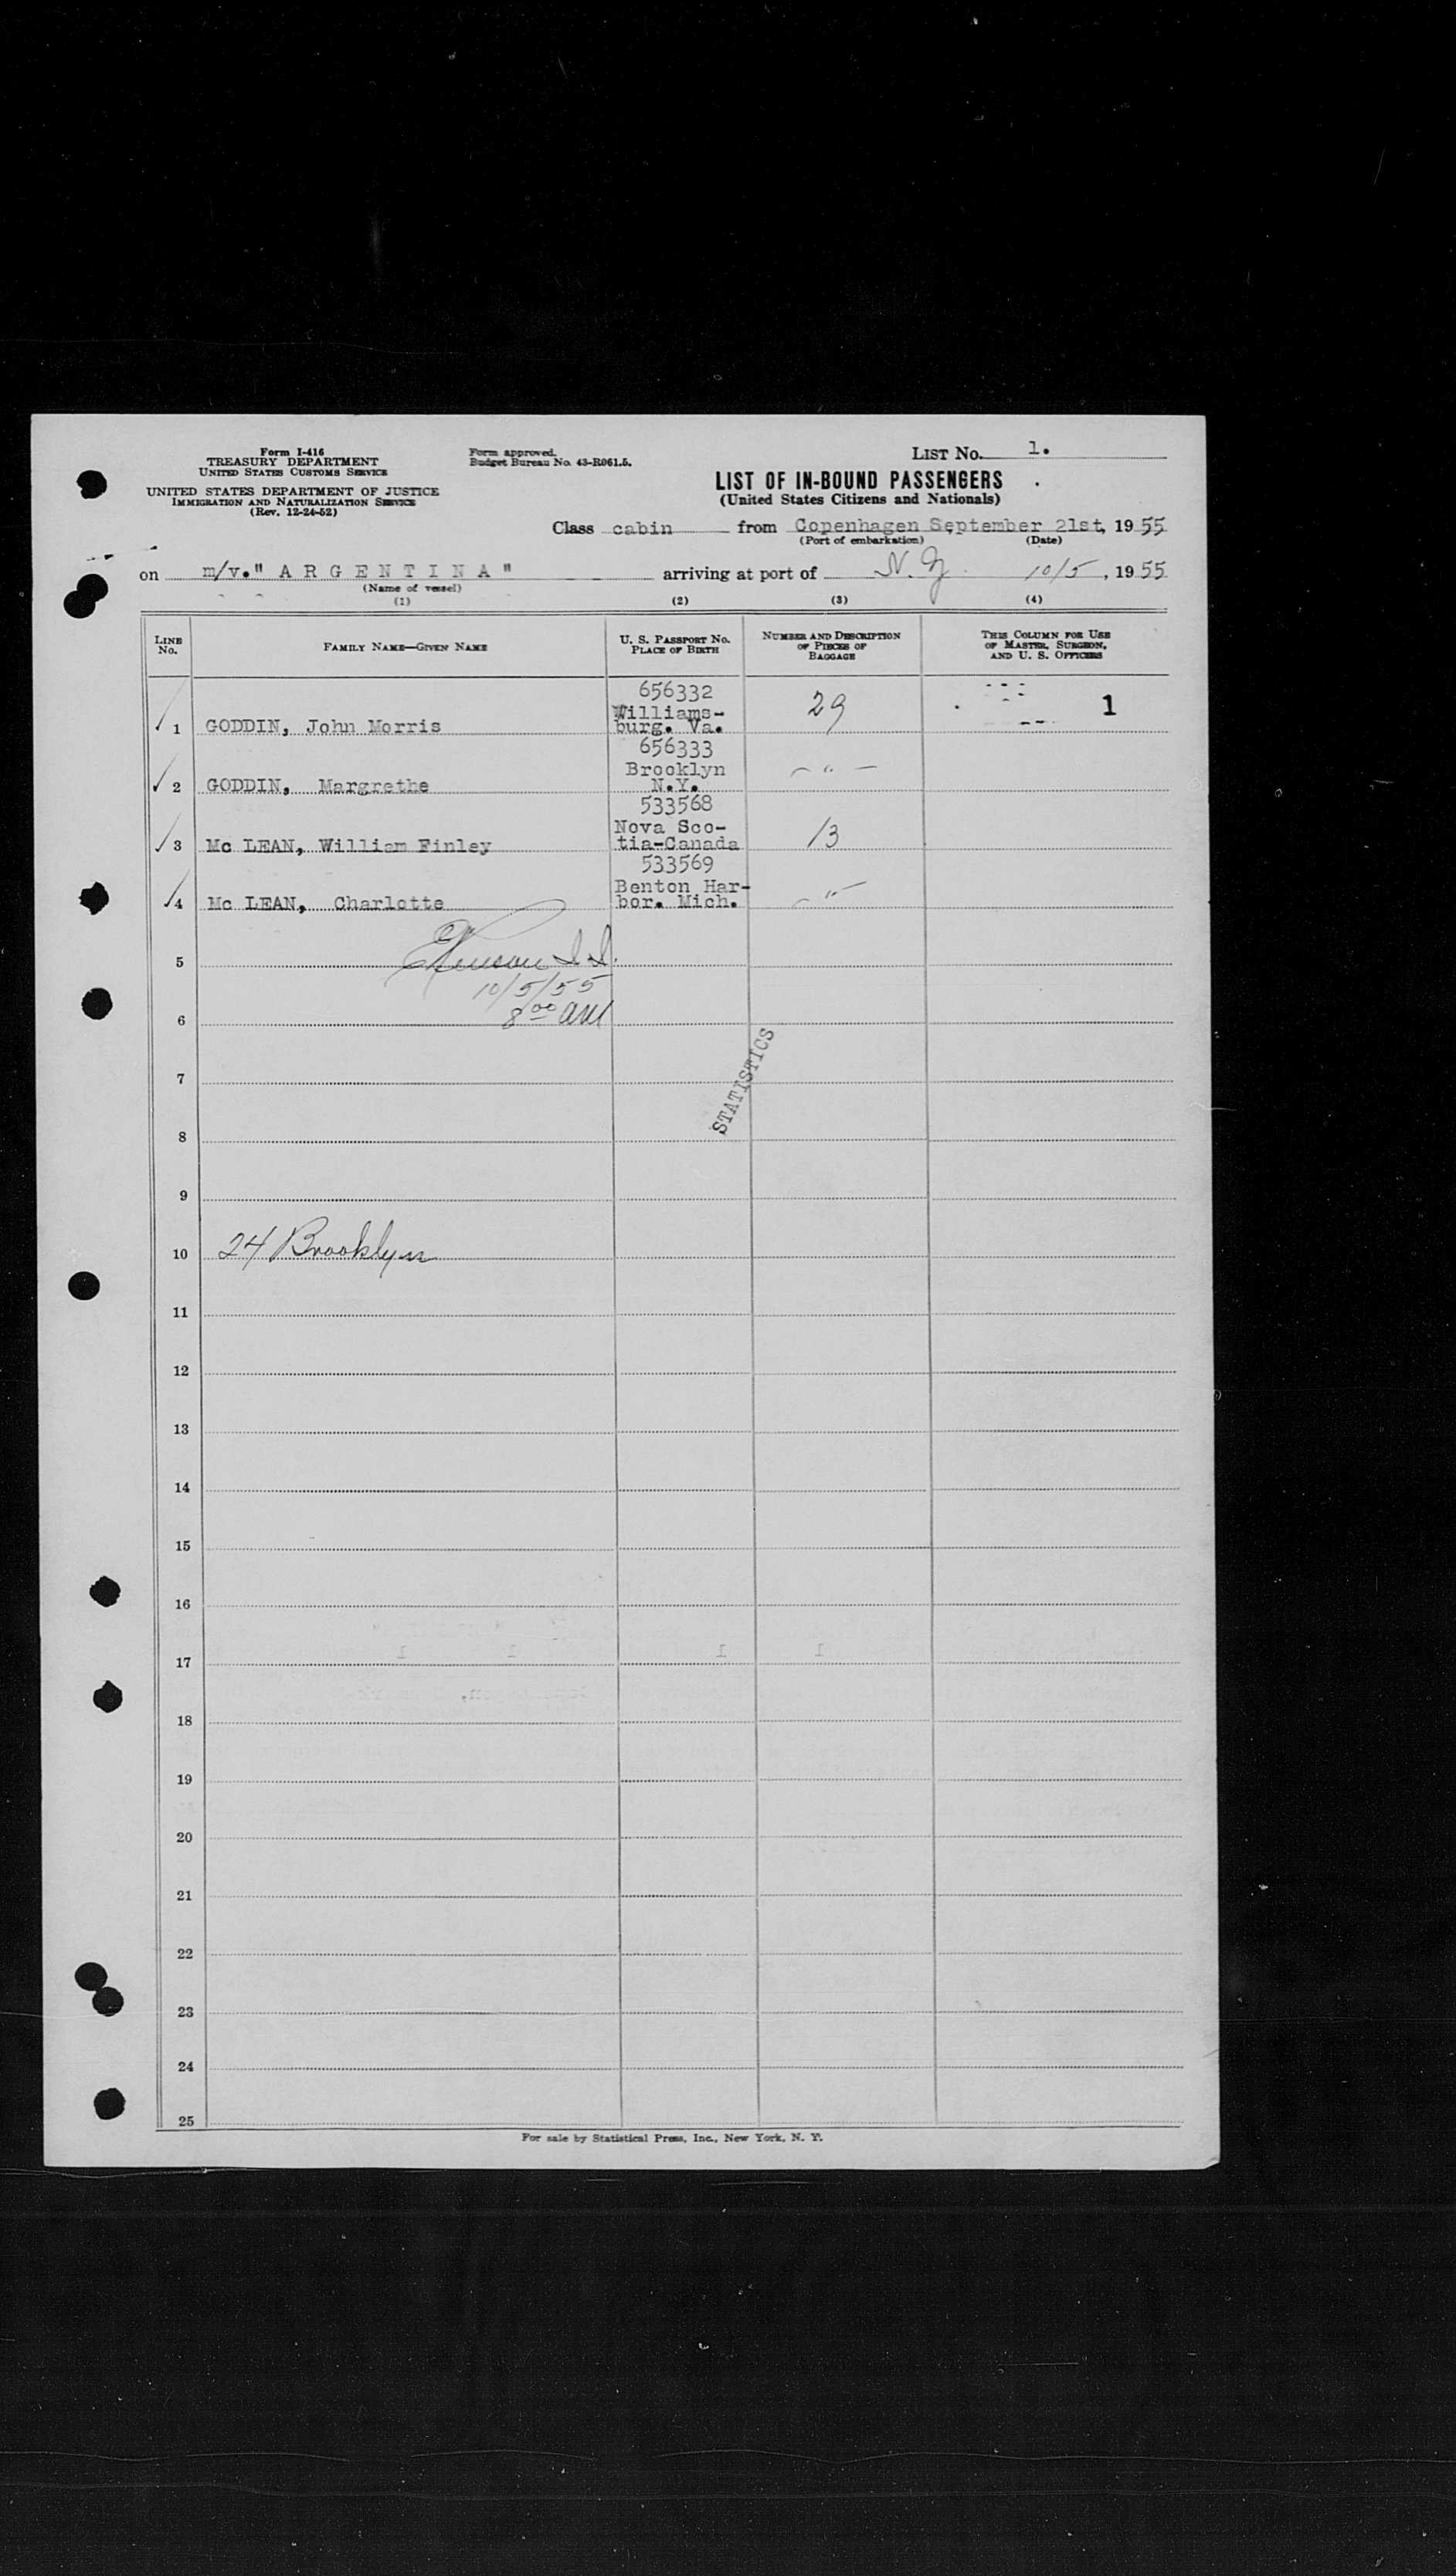 Form I-416
TREASURY DEPARTMENT
UNITED STATES CUSTOMS SERVICE
UNITED STATES DEPARTMENT OF JUSTICE
IMMIGRATION AND NATURALIZATION SERVICE
(Rev. 12-24-52)
Form approved.
Budget Bureau No. 43-R061.5.
LIST No. 1.
LIST OF IN-BOUND PASSENGERS
(United States Citizens and Nationals)
Class cabin from Copenhagen September 21st, 1955
(Port of embarkation) (Date)
on m/v." A R G E N T I N A " arriving at port of N.Y. 10/5, 1955
(Name of vessel)
(1) (2) (3) (4)
LINE No. FAMILY NAME—GIVEN NAME U. S. PASSPORT No. PLACE OF BIRTH NUMBER AND DESCRIPTION OF PIECES OF BAGGAGE THIS COLUMN FOR USE OF MASTER, SURGEON, AND U. S. OFFICERS
656332
Williams-
1 GODDIN, John Morris burg. Va. 29 1
656333
Brooklyn
2 GODDIN, Margrethe N.Y. — " —
533568
Nova Sco-
3 Mc LEAN, William Finley tia-Canada 13
533569
Benton Har-
4 Mc LEAN, Charlotte bor. Mich. — " —
5
10/5/55
6 8 00 AM
7
STATISTICS
8
9
10 24 Brooklyn
11
12
13
14
15
16
17
18
19
20
21
22
23
24
25
For sale by Statistical Press, Inc., New York, N. Y.